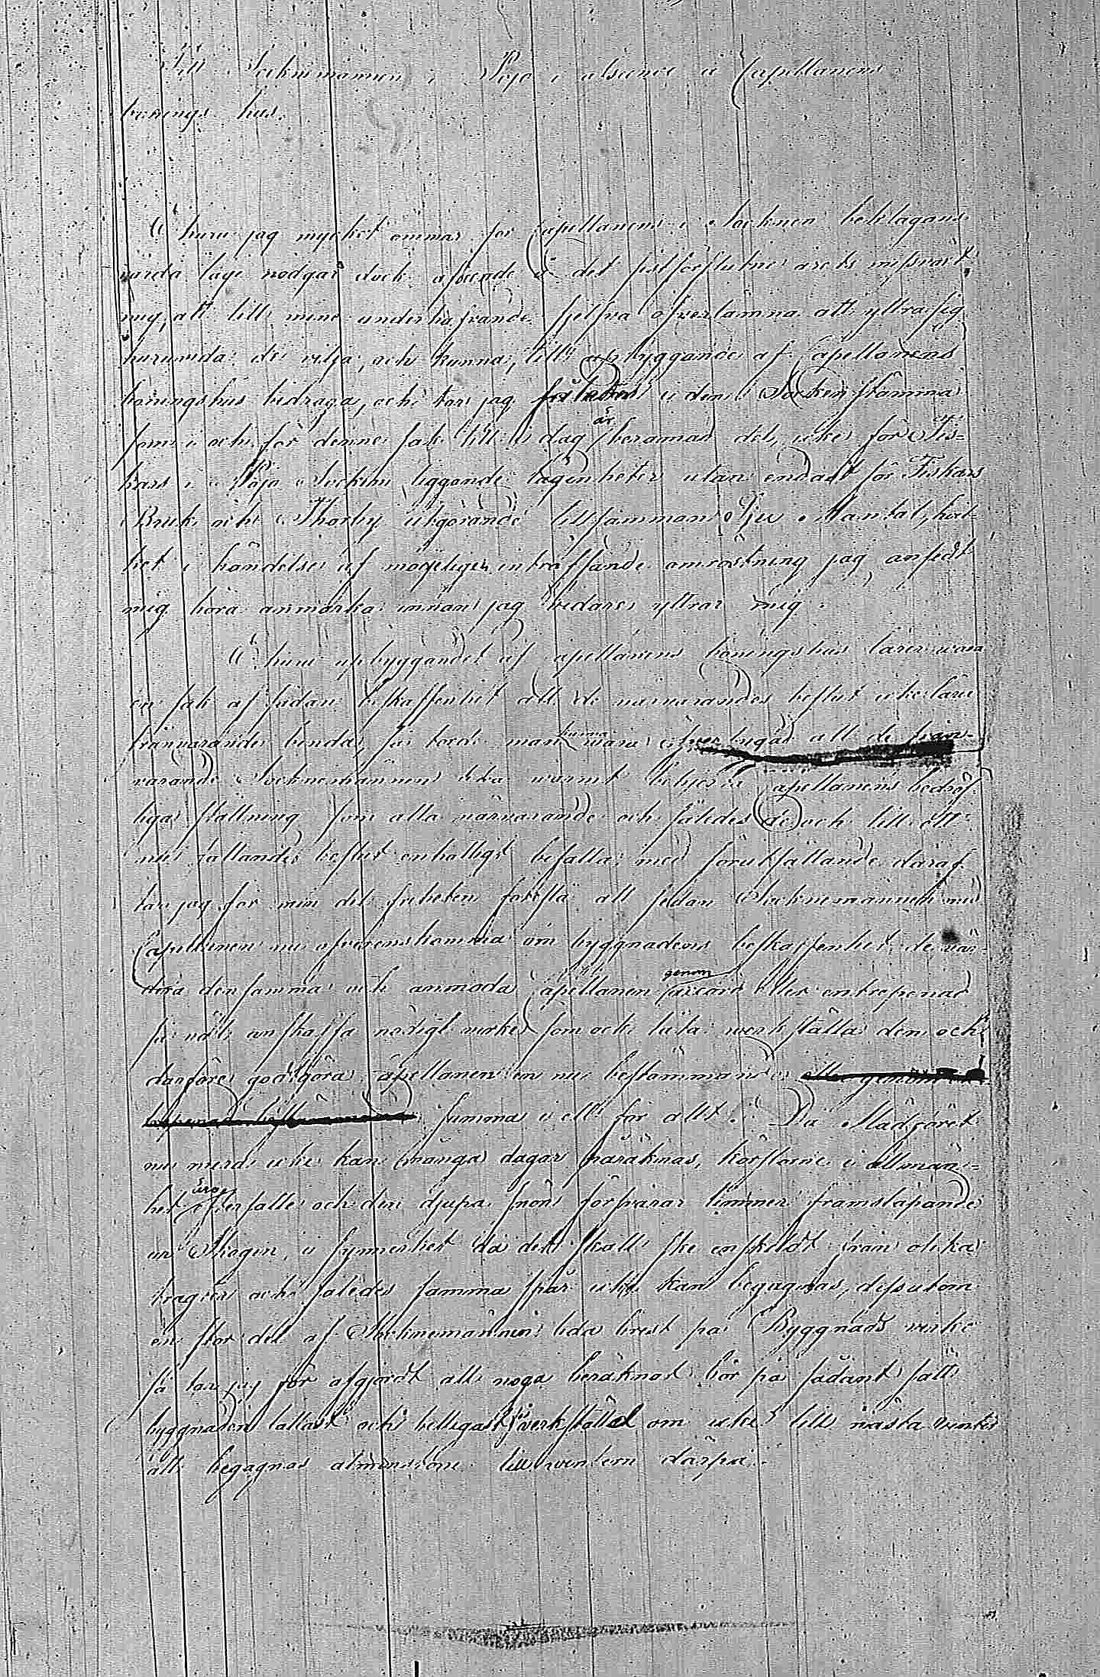 Till Socknemännen i Pojo i absence á Capellanens
bonings hus.
Ehuru jag mycket ömmar för Capellanens i Socknen beklagans
värda läge nödgas dock afseende å det sistförflutne årets missväxt
mig, att till mine underhafvande sjelfva öfverlämna att yttra sig
huruvida de vilja, och kunna, till upbyggande af Capellanens
boningshus bidraga, och tar jag i den Sockenstämma
som i och för denne sak till i dag är beramad del, icke för Fis-
kars i Pojo Sockn liggande lägenheter utan endast för Fiskars
Bruk och Thorby utgörande tillsamman Sju Mantal, hvil-
ket i händelse af möjeligen inträffande omröstning jag ansedt
mig böra anmärka innan jag vidare yttrar mig.
Ehuru upbyggandet af Capellanens boningshus lärer vara
en sak af sådan beskaffenhet att de närvarandes beslut icke lärer
frånvarande binda, så torde man kunna vara öfvertygad att de från-
varande Socknemännen lika varmt behjerta Capellanens bedröf-
liga ställning som alla närvarande och således de och till ett
nu fallande beslut enhälligt befalla; med förutsättande däraf
tar jag för min del friheten föreslå att sedan Socknemännen med
Capellanen nu öfverenskommia om byggnadens beskaffenhet de vär-
dera densamma och anmoda Capellanen genom accord eller entreprenad
få nätt anskaffa nödigt virke som ock låta verkställa den och
därföre godtgöra Capellanen en nu bestämmande
summa i ett för allt. Då Slädföret
nu mera icke kan många dagar påräknas, körslorne i allmän-
het äro och den djupa snön försvårar timmer framsläpande
ur Skogen, i synnerhet då det skall ske enskildt från olika
trakter och således samma spår icke kan begagnas, dessutom
en stor del af Socknemännen lida brist på Byggnads virke
så tar jag för afgjordt att noga beräknat bör på sådant sätt
byggnaden lättast och billigast verkställd om icke till nästa vinter
att begagnas åtminstone till vintern därpå.